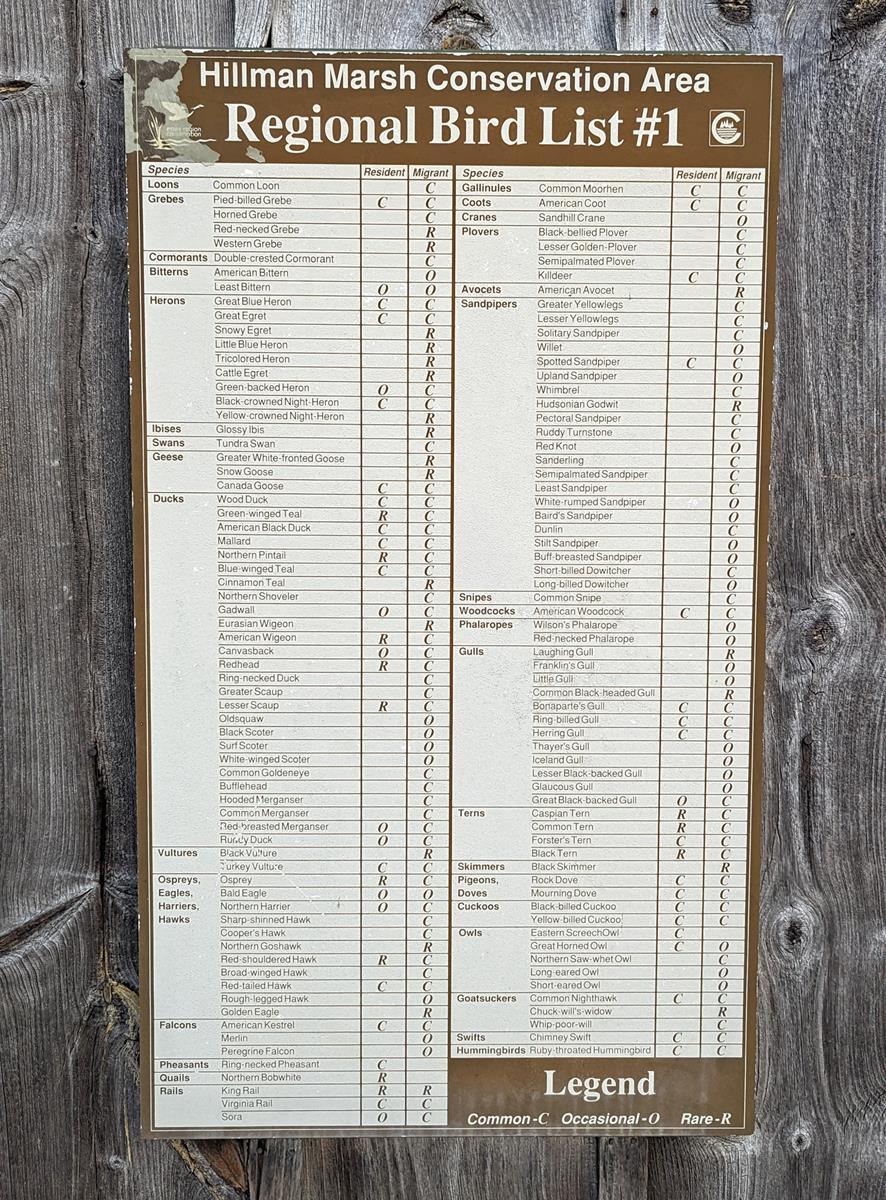 Hillman Marsh Conservation Area
Regional Bird List #1
essex region
conservation
Species Resident Migrant
Loons Common Loon C
Grebes Pied-billed Grebe C C
Horned Grebe C
Red-necked Grebe R
Western Grebe R
Cormorants Double-crested Cormorant C
Bitterns American Bittern O
Least Bittern O O
Herons Great Blue Heron C C
Great Egret C C
Snowy Egret R
Little Blue Heron R
Tricolored Heron R
Cattle Egret R
Green-backed Heron O C
Black-crowned Night-Heron C C
Yellow-crowned Night-Heron R
Ibises Glossy Ibis R
Swans Tundra Swan C
Geese Greater White-fronted Goose R
Snow Goose R
Canada Goose C C
Ducks Wood Duck C C
Green-winged Teal R C
American Black Duck C C
Mallard C C
Northern Pintail R C
Blue-winged Teal C C
Cinnamon Teal R
Northern Shoveler C
Gadwall O C
Eurasian Wigeon R
American Wigeon R C
Canvasback O C
Redhead R C
Ring-necked Duck C
Greater Scaup C
Lesser Scaup R C
Oldsquaw O
Black Scoter O
Surf Scoter O
White-winged Scoter O
Common Goldeneye C
Bufflehead C
Hooded Merganser C
Common Merganser C
Red-breasted Merganser O C
Ruddy Duck O C
Vultures Black Vulture R
Turkey Vulture C C
Ospreys, Osprey R C
Eagles, Bald Eagle O O
Harriers, Northern Harrier O C
Hawks Sharp-shinned Hawk C
Cooper's Hawk C
Northern Goshawk R
Red-shouldered Hawk R C
Broad-winged Hawk C
Red-tailed Hawk C C
Rough-legged Hawk O
Golden Eagle R
Falcons American Kestrel C C
Merlin O
Peregrine Falcon O
Pheasants Ring-necked Pheasant C
Quails Northern Bobwhite R
Rails King Rail R R
Virginia Rail C C
Sora O C
Species Resident Migrant
Gallinules Common Moorhen C C
Coots American Coot C C
Cranes Sandhill Crane O
Plovers Black-bellied Plover C
Lesser Golden-Plover C
Semipalmated Plover C
Killdeer C C
Avocets American Avocet R
Sandpipers Greater Yellowlegs C
Lesser Yellowlegs C
Solitary Sandpiper C
Willet O
Spotted Sandpiper C C
Upland Sandpiper O
Whimbrel C
Hudsonian Godwit R
Pectoral Sandpiper C
Ruddy Turnstone C
Red Knot O
Sanderling C
Semipalmated Sandpiper C
Least Sandpiper C
White-rumped Sandpiper O
Baird's Sandpiper O
Dunlin C
Stilt Sandpiper O
Buff-breasted Sandpiper O
Short-billed Dowitcher C
Long-billed Dowitcher O
Snipes Common Snipe C
Woodcocks American Woodcock C C
Phalaropes Wilson's Phalarope O
Red-necked Phalarope O
Gulls Laughing Gull R
Franklin's Gull O
Little Gull O
Common Black-headed Gull R
Bonaparte's Gull C C
Ring-billed Gull C C
Herring Gull C C
Thayer's Gull O
Iceland Gull O
Lesser Black-backed Gull O
Glaucous Gull O
Great Black-backed Gull O C
Terns Caspian Tern R C
Common Tern R C
Forster's Tern C C
Black Tern R C
Skimmers Black Skimmer R
Pigeons, Rock Dove C C
Doves Mourning Dove C C
Cuckoos Black-billed Cuckoo C C
Yellow-billed Cuckoo C C
Owls Eastern ScreechOwl C
Great Horned Owl C O
Northern Saw-whet Owl C
Long-eared Owl O
Short-eared Owl O
Goatsuckers Common Nighthawk C C
Chuck-will's-widow R
Whip-poor-will C
Swifts Chimney Swift C C
Hummingbirds Ruby-throated Hummingbird C C
Legend
Common-C Occasional-O Rare-R